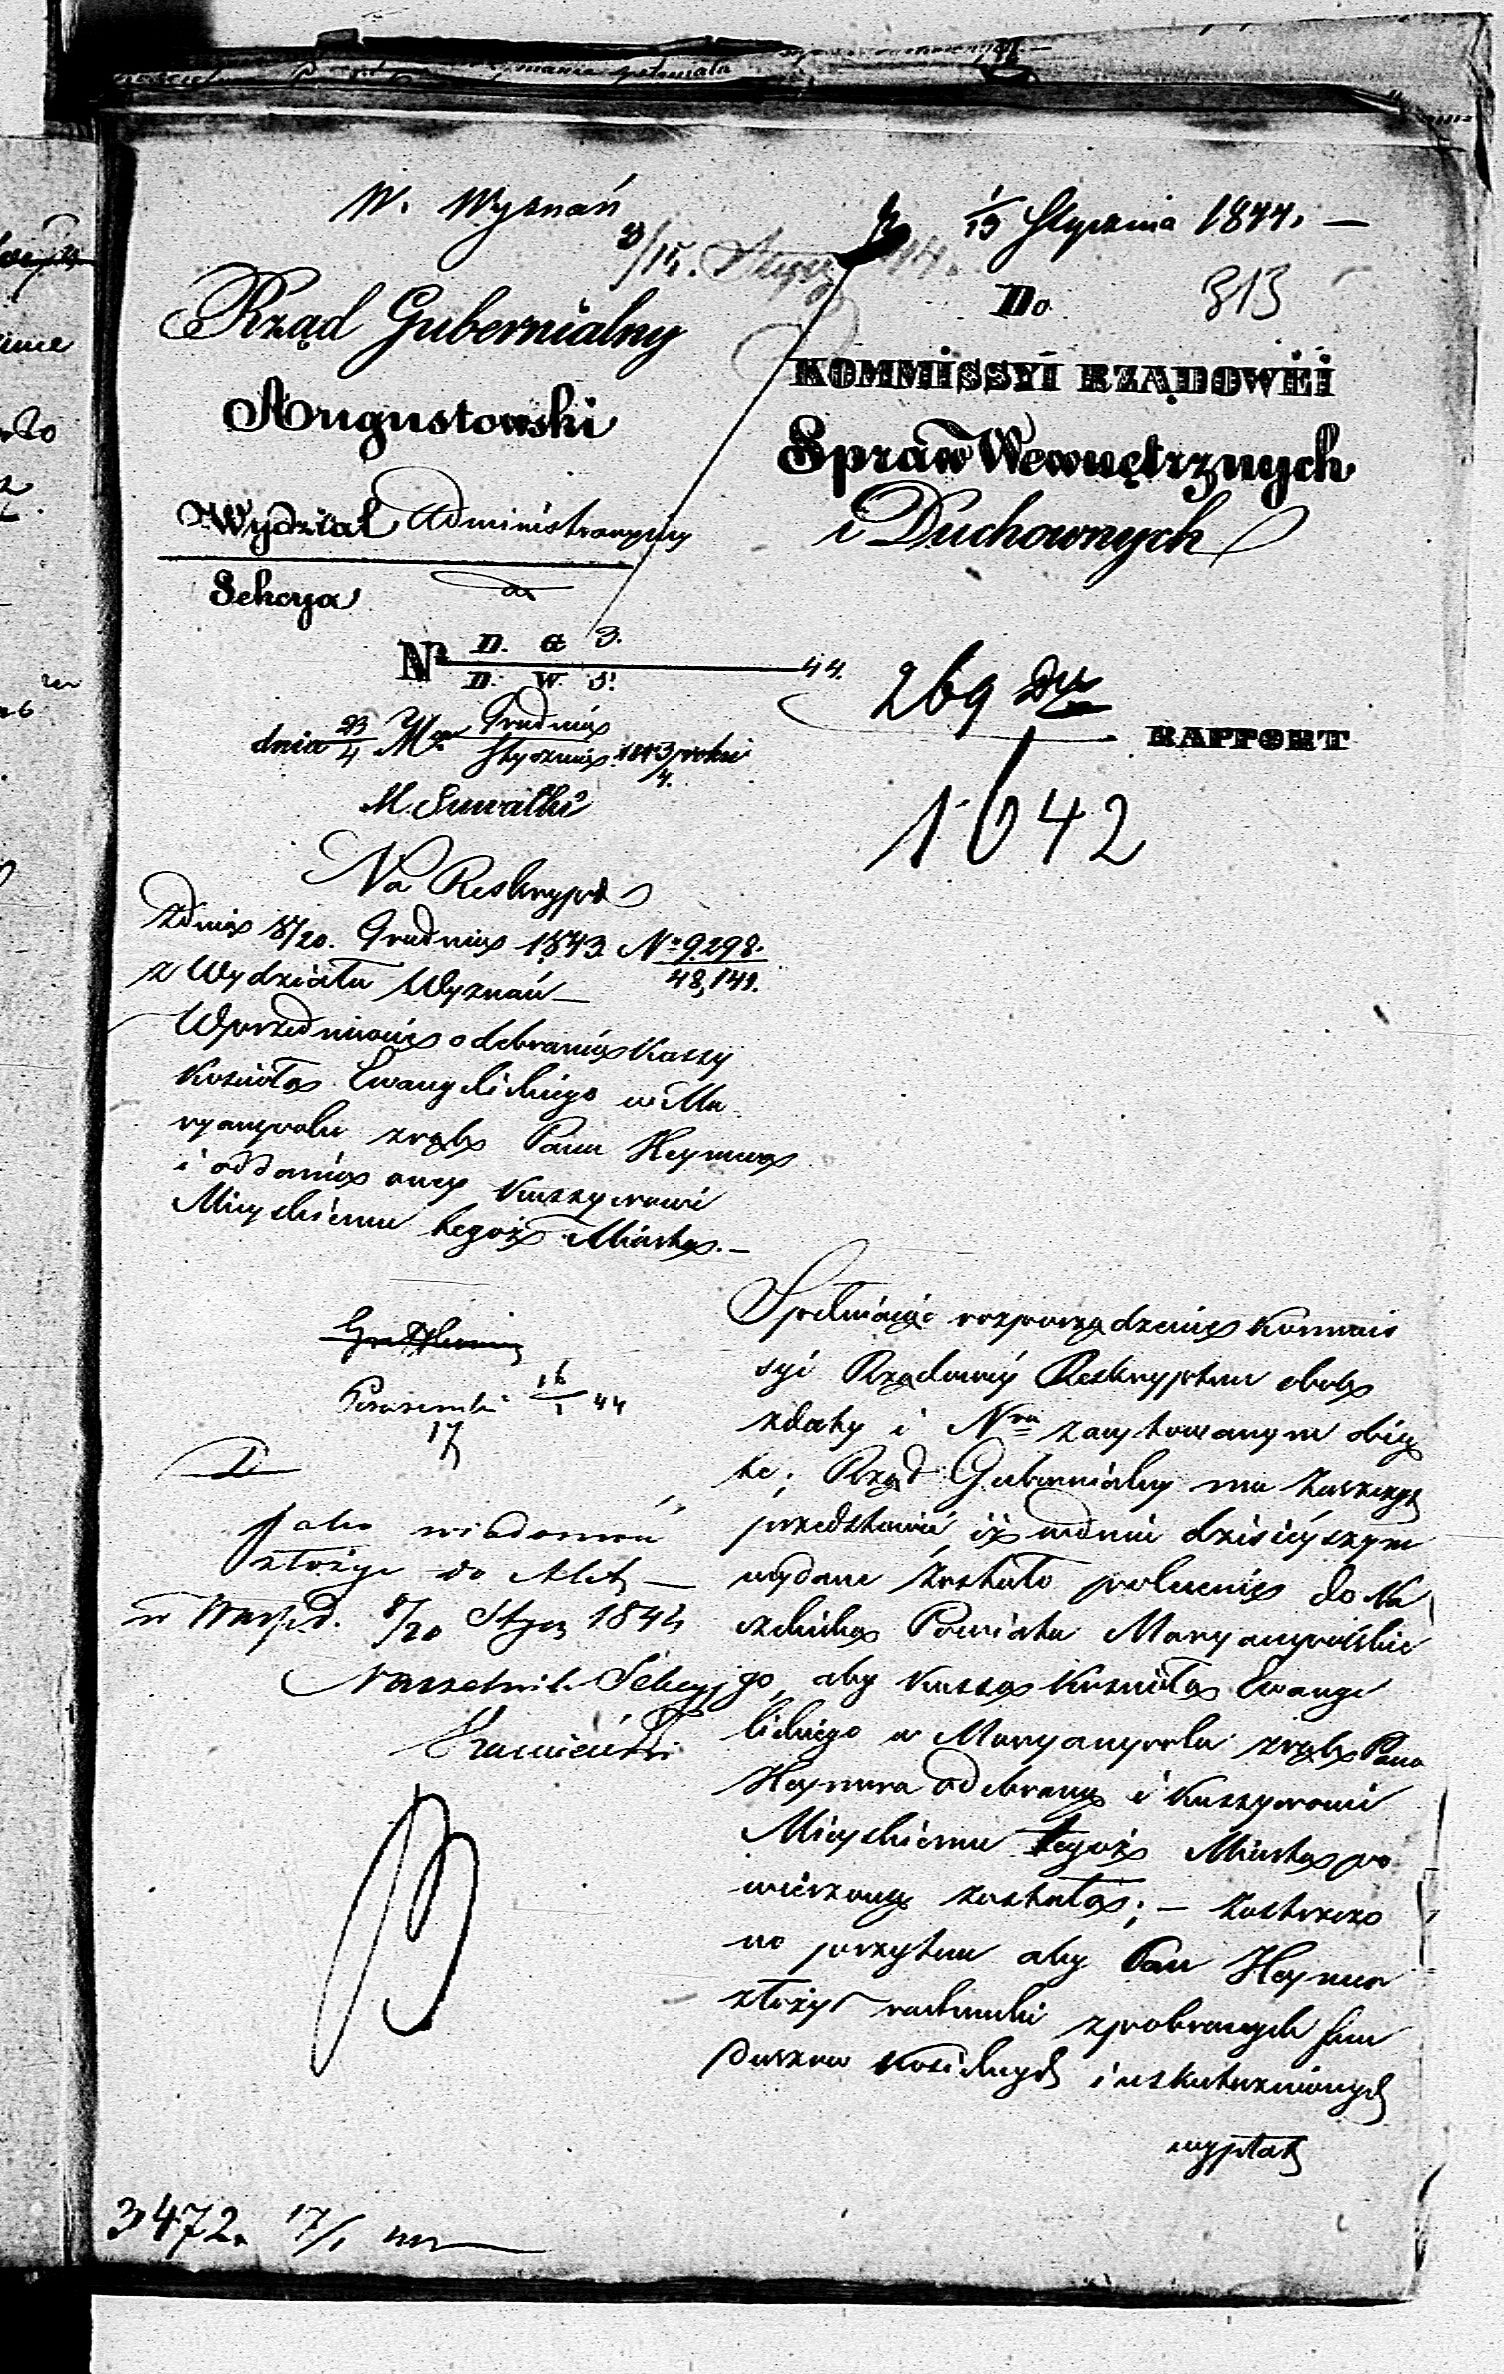 W. Wyznań
1/13 Stycznia 1844. —
3/15. Stycz 44.
Do
313
Rząd Gubernialny
Augustowski
KOMMISSYI RZĄDOWÉI
Spraw Wewnętrznych
i Duchownych
Wydział Administracyjny
Sekcya
N° D. G 3. 44.
D. W. S!
dnia 23/4 M Grudnia/Stycznia 1843/4. roku
M. Suwałki
269
RAPPORT
1642
Na Reskrypt
z dnia 8/20. Grudnia 1843 N° 9298.
48,141.
z Wydziału Wyznań —
W przedmiocie odebrania Kassy
Kościoła Ewangelickiego w Ma
ryampolu z rąk Pana Heymera
i oddania oney Kassyerowi
Mieyskiemu tegoż Miasta. —
16/1 44
17
Jako wiadomość
złożyć do Akt —
w Warsz. d. 8/20 Stycz 1844
Naczelnik Sekcyi
Spełniając rozporządzenie Kommis
syi Rządowéy Reskryptem obok
z daty i Nru zacytowanym obię
te; Rząd Gubernialny ma zaszczyt
przedstawić, iż w dniu dzisieyszym
wydane zostało polecenie do Na
czelnika Powiatu Maryampolskie
go, aby Kassa Kościoła Ewange
lickiego w Maryampolu z rąk Pana
Heymera odebraną i Kassyerowi
Mieyskiemu tegoż Miasta po
wierzoną została; — zastrzeżo
no przytem aby Pan Heymer
złożył rachunki z pobranych fun
duszów Kościelnych i uskutecznionych
wypłat
3472. 17/1